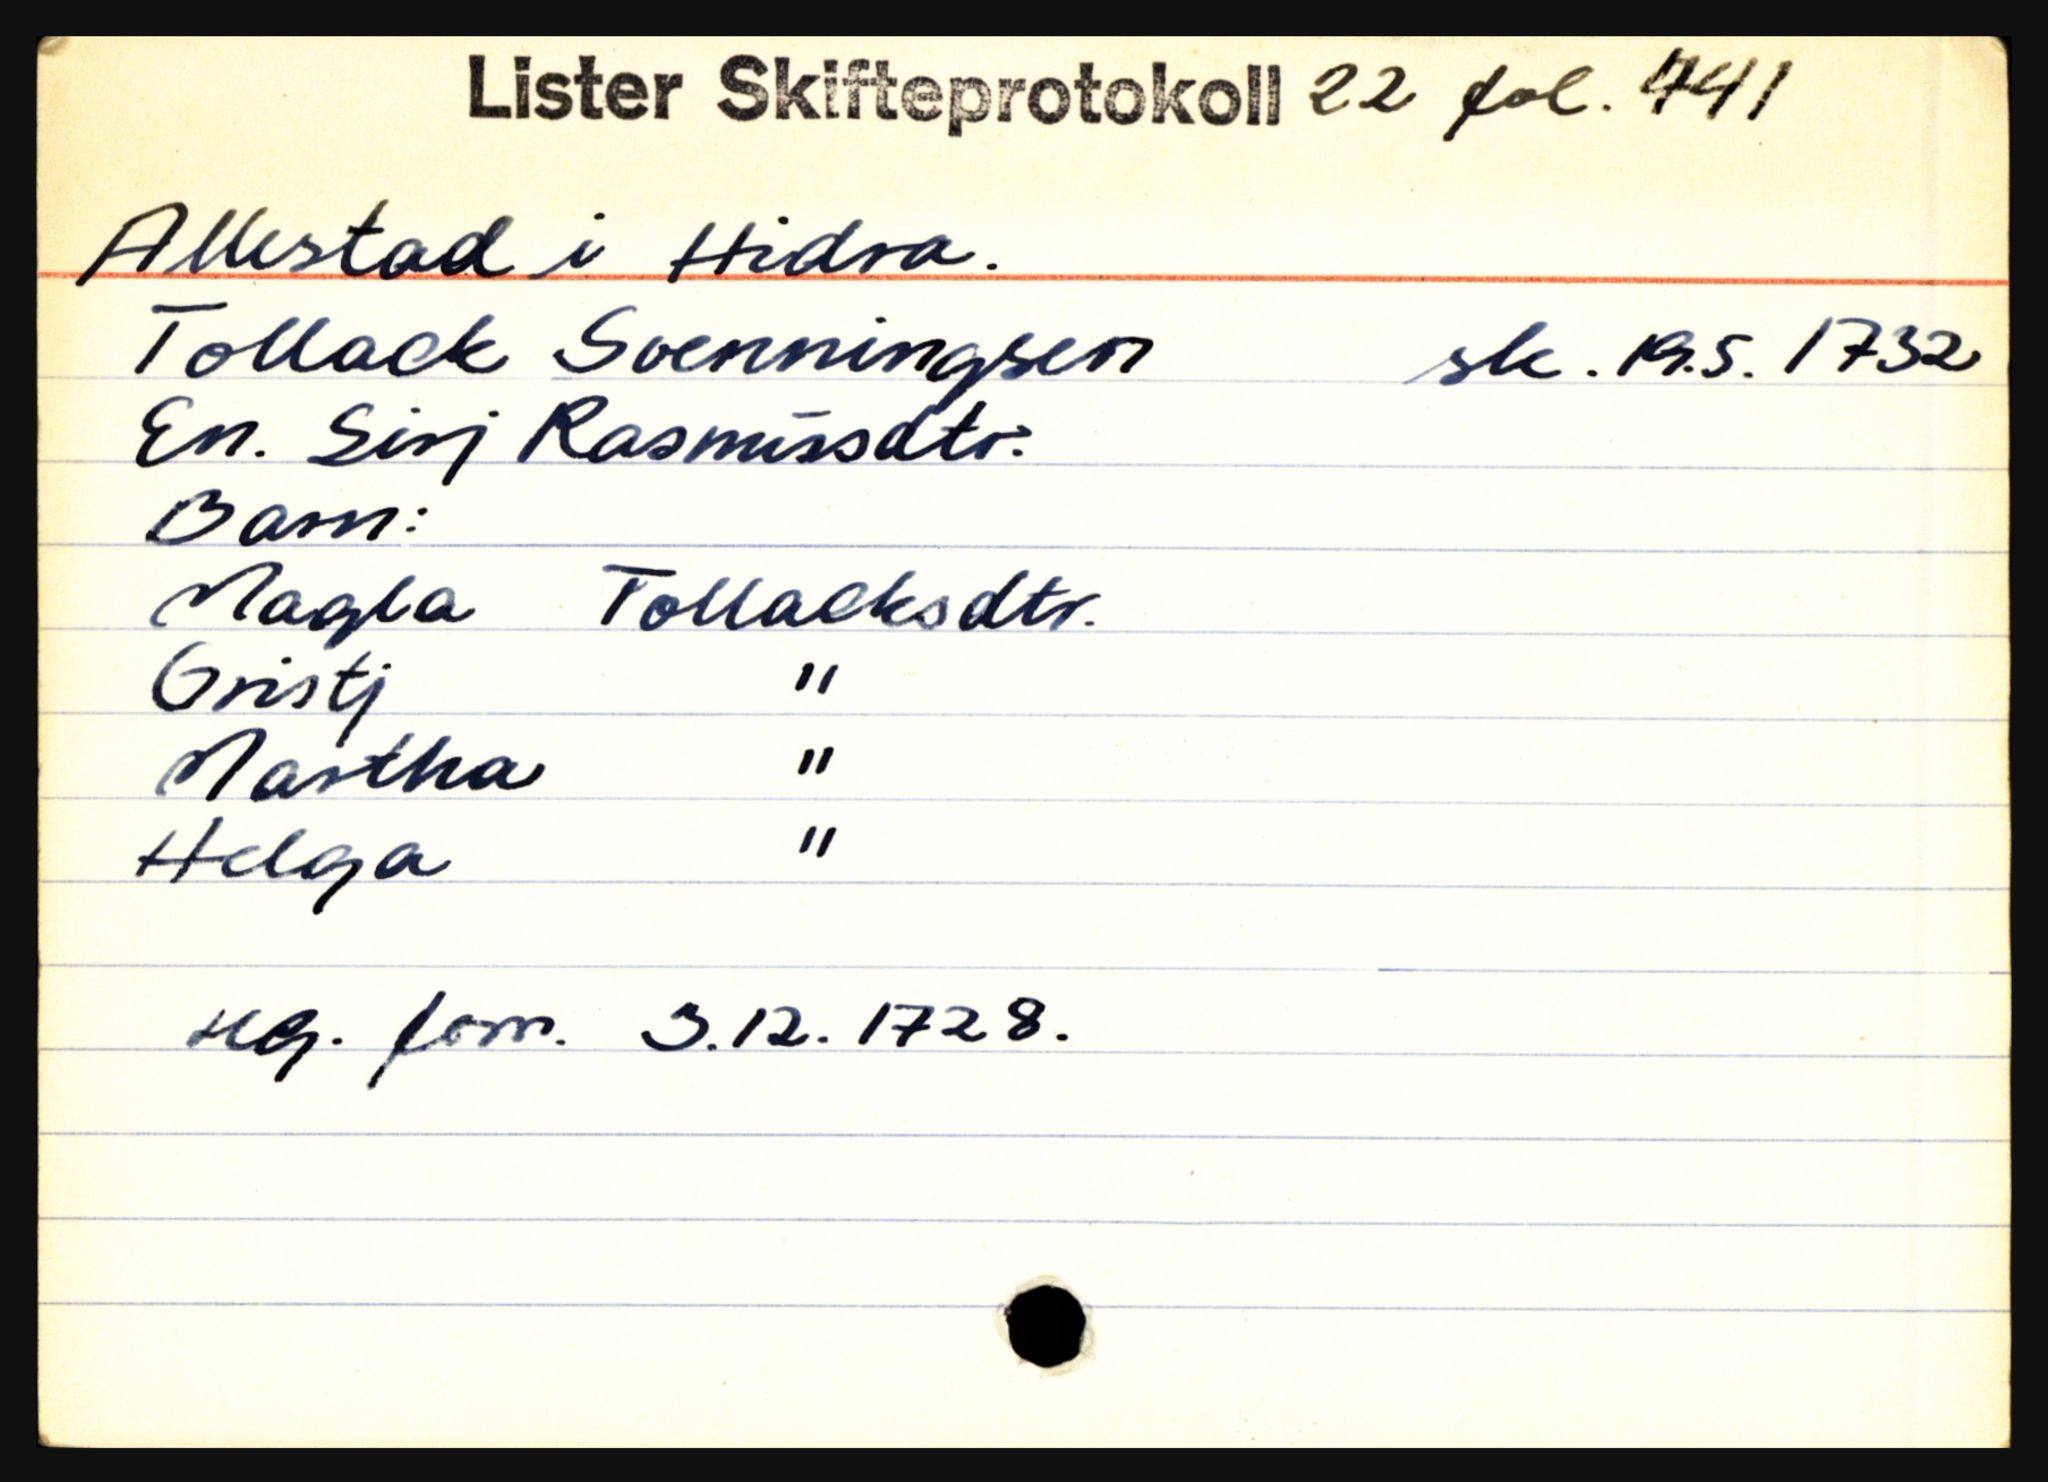 Lister Skifteprotokoll 22 fol. 441
Allestad i Hidra.
Tollack Svenningsen sk. 19.5. 1732
En. Sirj Rasmusdtr.
Barn:
Magla Tollacksdtr.
Gristj "
Martha "
Helga "
reg. forr. 3.12.1728.